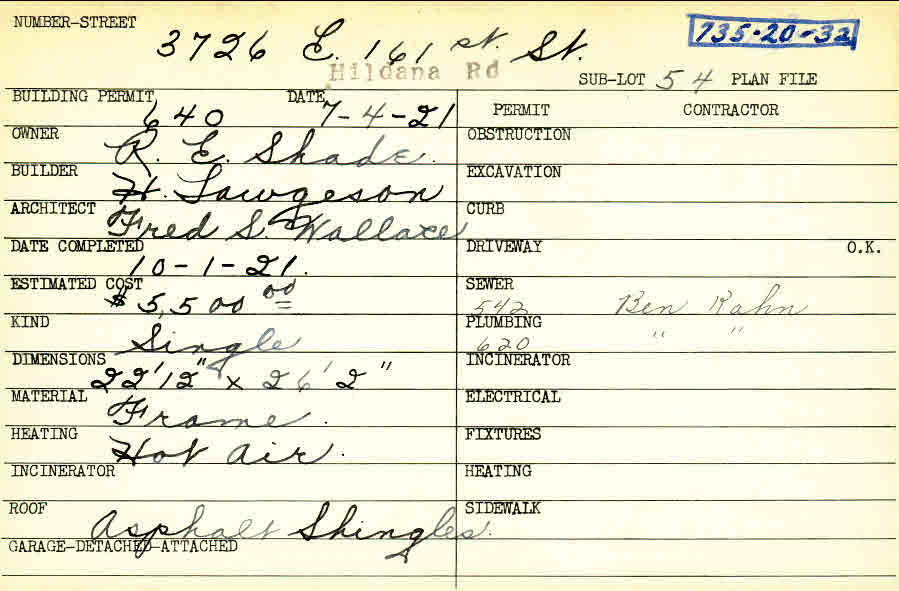 NUMBER-STREET 3726 E. 161 st. St. 735-20-32
Hildana Rd
SUB-LOT 54 PLAN FILE
BUILDING PERMIT 640 DATE 7-4-21 PERMIT CONTRACTOR
OWNER R. E. Shade. OBSTRUCTION
BUILDER H. Sawgeson EXCAVATION
ARCHITECT Fred S. Wallace CURB
DATE COMPLETED 10-1-21. DRIVEWAY O.K.
ESTIMATED COST $5,500 00 SEWER 542 Ben Kahn
KIND Single PLUMBING 620 " "
DIMENSIONS 22'12" x 26'2" INCINERATOR
MATERIAL Frame. ELECTRICAL
HEATING Hot Air. FIXTURES
INCINERATOR HEATING
ROOF Asphalt Shingles. SIDEWALK
GARAGE-DETACHED-ATTACHED